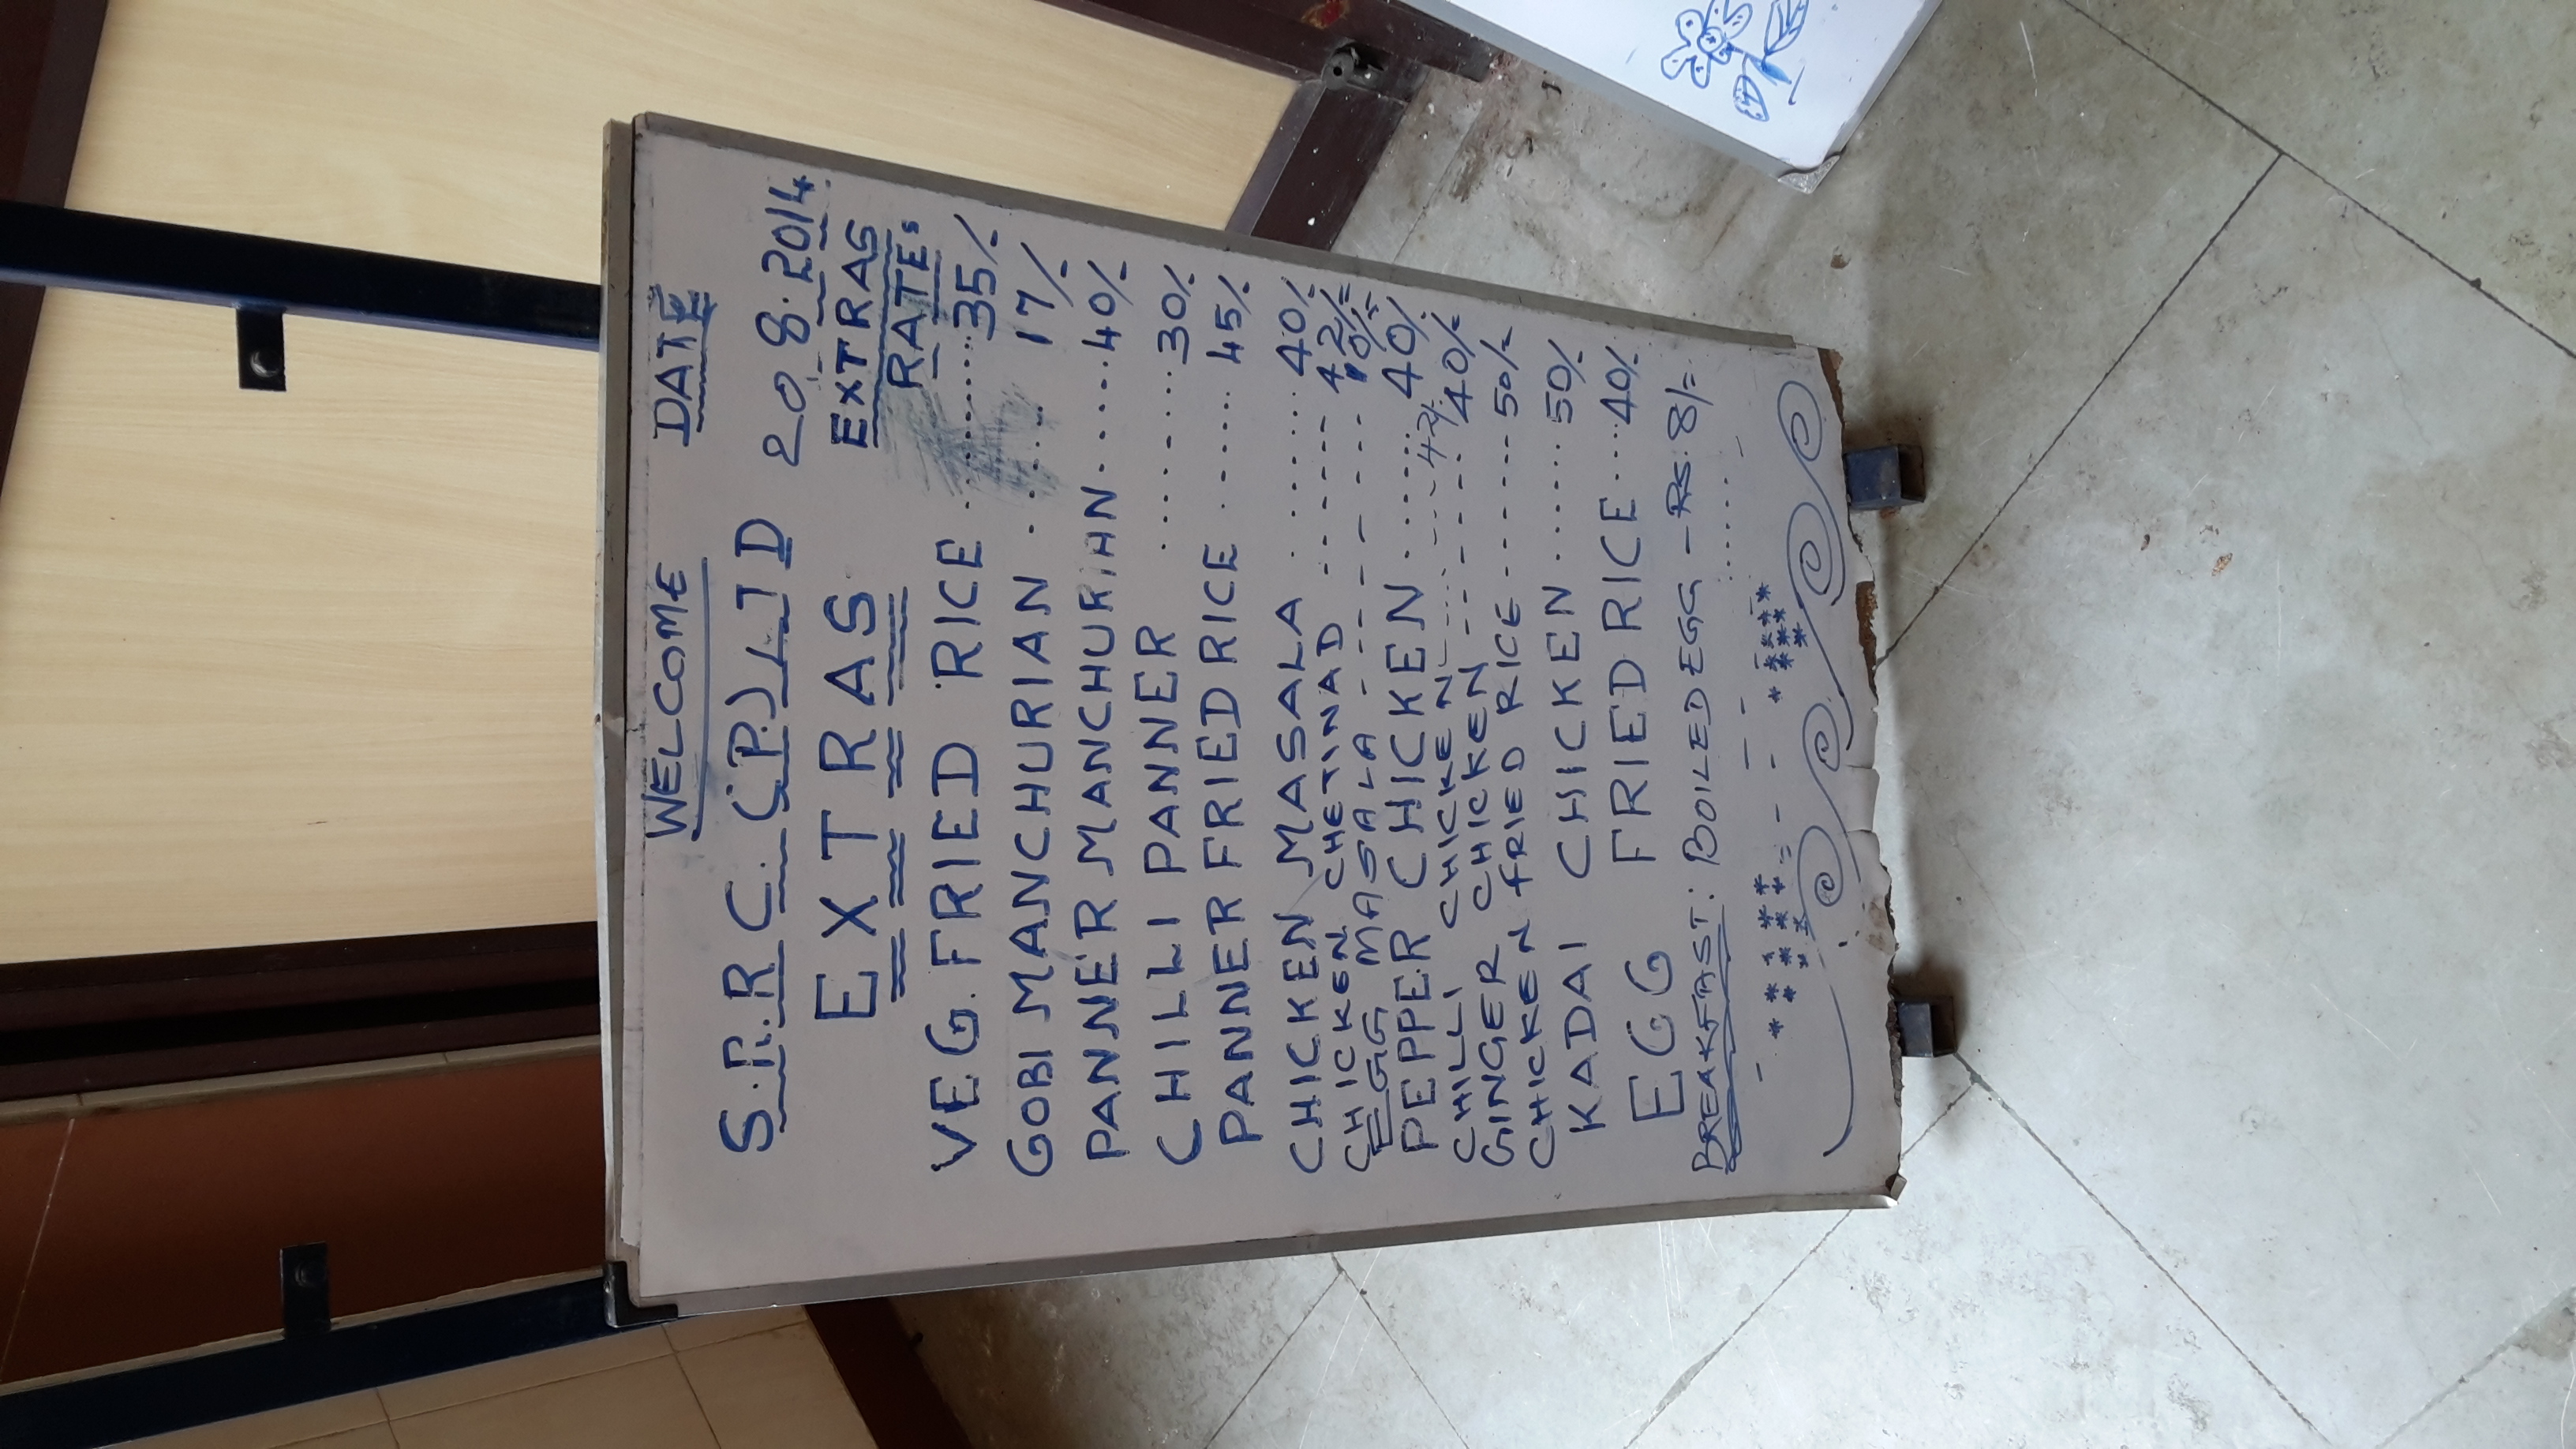 WELCOME DATE
S.R.R C. (P.) LTD 20.8.2014
EXTRAS EXTRAS
RATES
VEG. FRIED RICE ......... 35/-
GOBI MANCHURIAN ...... 17/-
PANNER MANCHURIAN ..... 40/-
CHILLI PANNER ........ 30/-
PANNER FRIED RICE ...... 45/-
CHICKEN MASALA ........ 40/-
CHICKEN CHETINAD ------- 42/=
EGG MASALA -------- 10/=
PEPPER CHICKEN ...... 40/-
CHILLI CHICKEN ------- 42/-
GINGER CHICKEN ------- 40/-
CHICKEN FRIED RICE ------- 50/=
KADAI CHICKEN ...... 50/-
EGG FRIED RICE .... 40/-
BREAKFAST: BOILED EGG - RS. 8/=